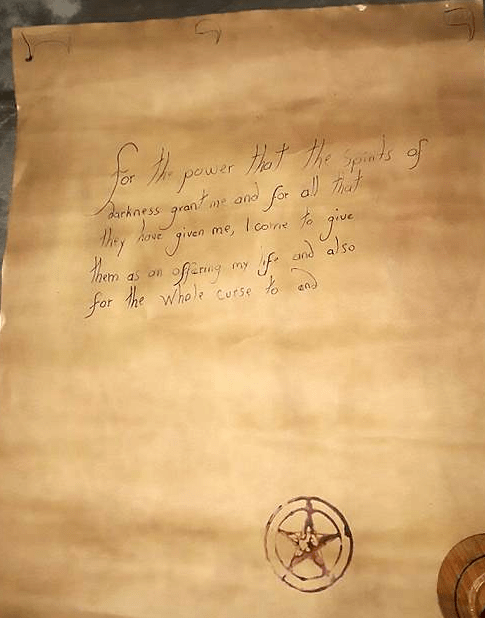 for the power that the spirits of
darkness grant me and for all that
they have given me, I come to give
them as an offering my life and also
for the whole curse to and